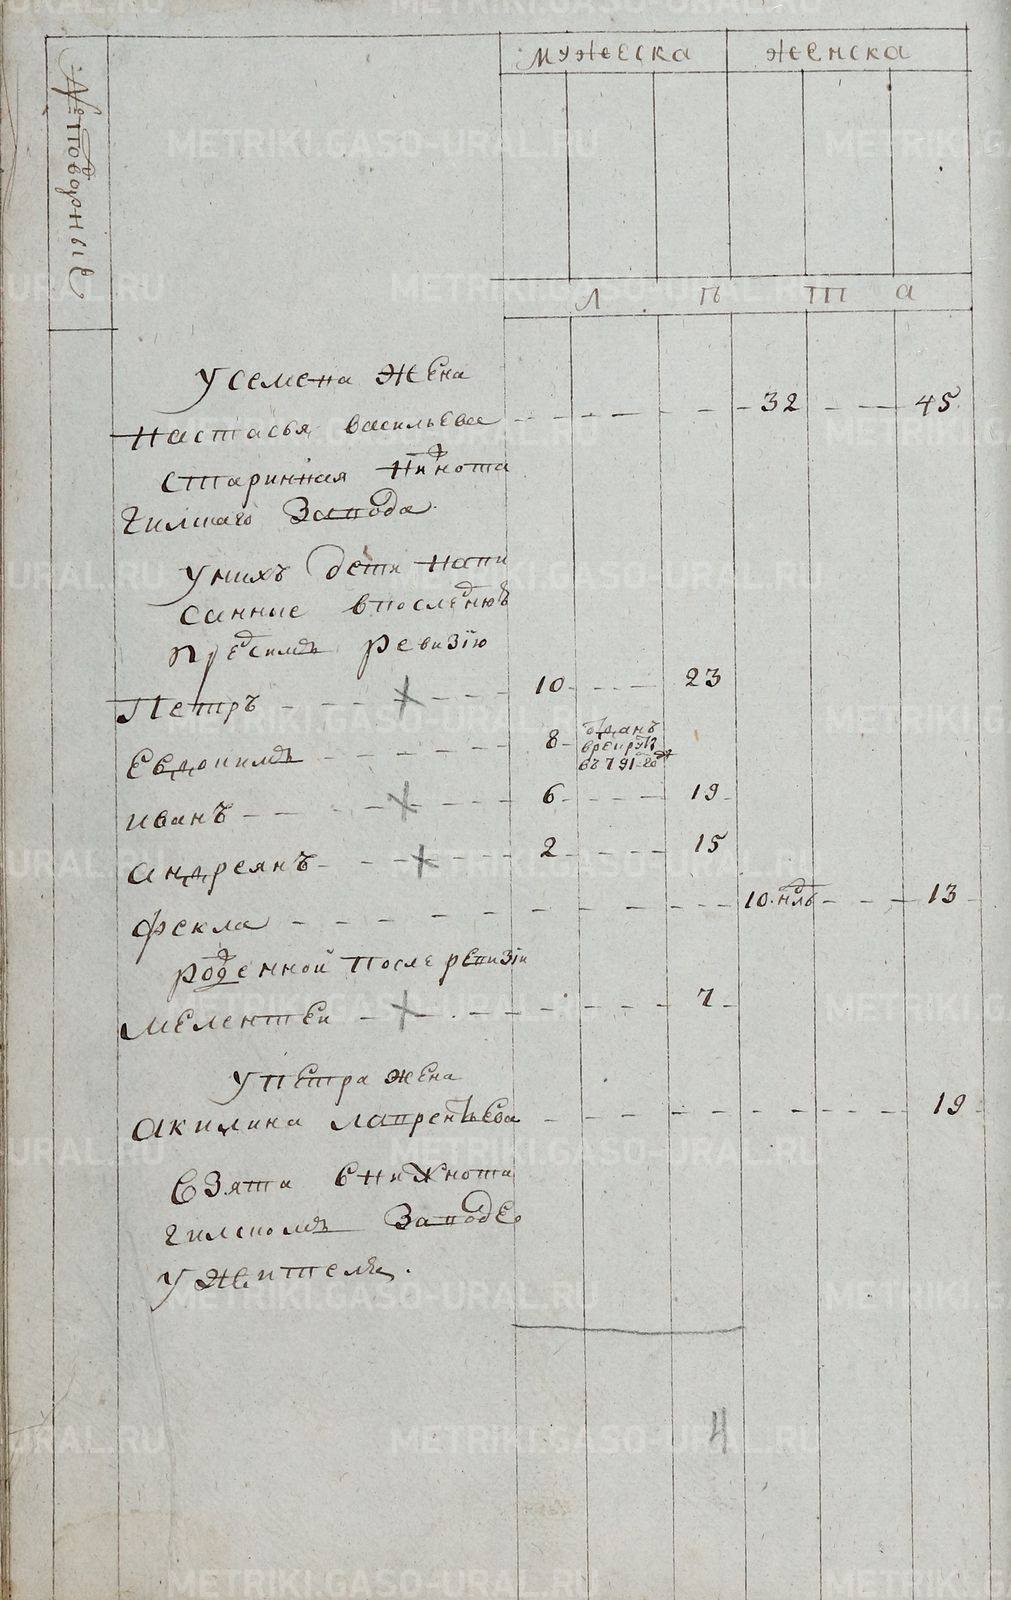 мужеска женска
№ подворные
Л п т а
У семена жена
настасья васильева 32 45
старинная нижнота
гилскаго завода
У нихъ дети напи
санные впоследнюю
пред симъ ревизию
Петръ 10 23
Евдокимъ 8 отданъ
врекруты
въ 791 год
иванъ 6 19
андреянъ 2 15
фекла 10 нль 13
рожденной после ревизiи
Мелентеи 7
У петра жена
акилина лаврентьева 19
взята в нижнота
гилскомъ заводе
У жителя.
4
METRIKI.GASO-URAL.RU